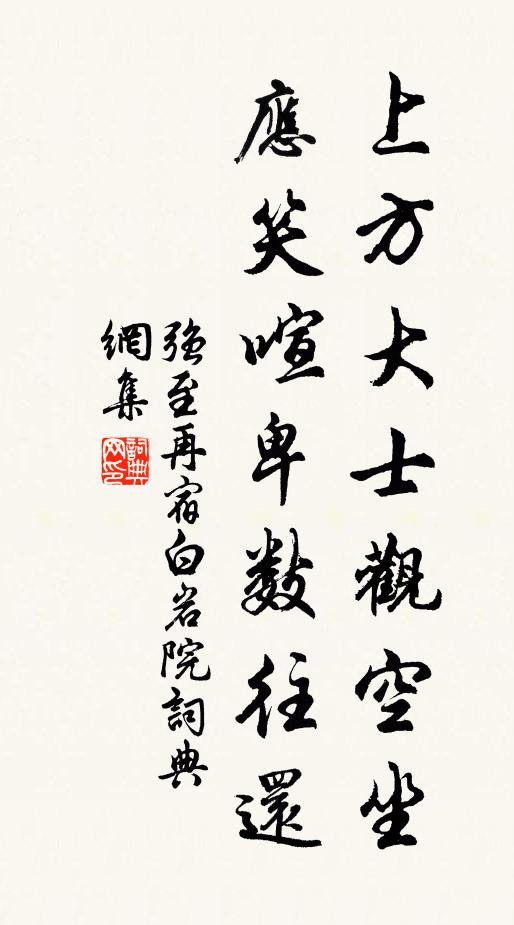 上方大士觀空坐
應笑喧卑數往還
強至再宿白岩院詞典
網集
詞典網印